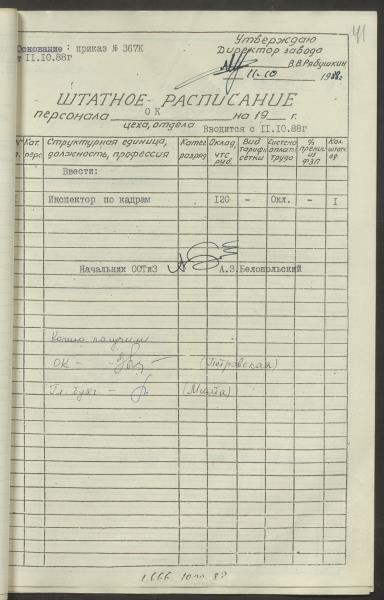 41
Утверждаю
Основание: приказ № 367К
Директор завода
от 11.10.88г
В.В.Рябушкин
11.10 1988г.
ШТАТНОЕ РАСПИСАНИЕ
персонала ОК на 19 г.
цеха, отдела Вводится с II.10.88г
Кат. перс Структурная единица, должность, профессия Катег разряд Оклад, чтс руб. Вид тарифн сетки Система оплаты труда % премии из ФЗП Кол. штат. ед.
Ввести:
Инспектор по кадрам 120 - Окл. - I
Начальник ООТиЗ А.З.Белопольский
Копию получили
ОК — (Петровская)
Гл. бухг. —